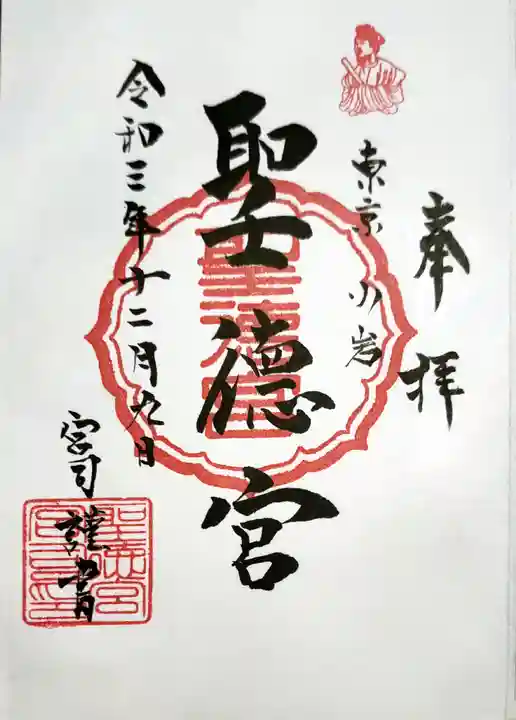 奉拝
東京 小岩
聖徳宮
令和三年十二月九日
宮司 謹書
聖徳宮